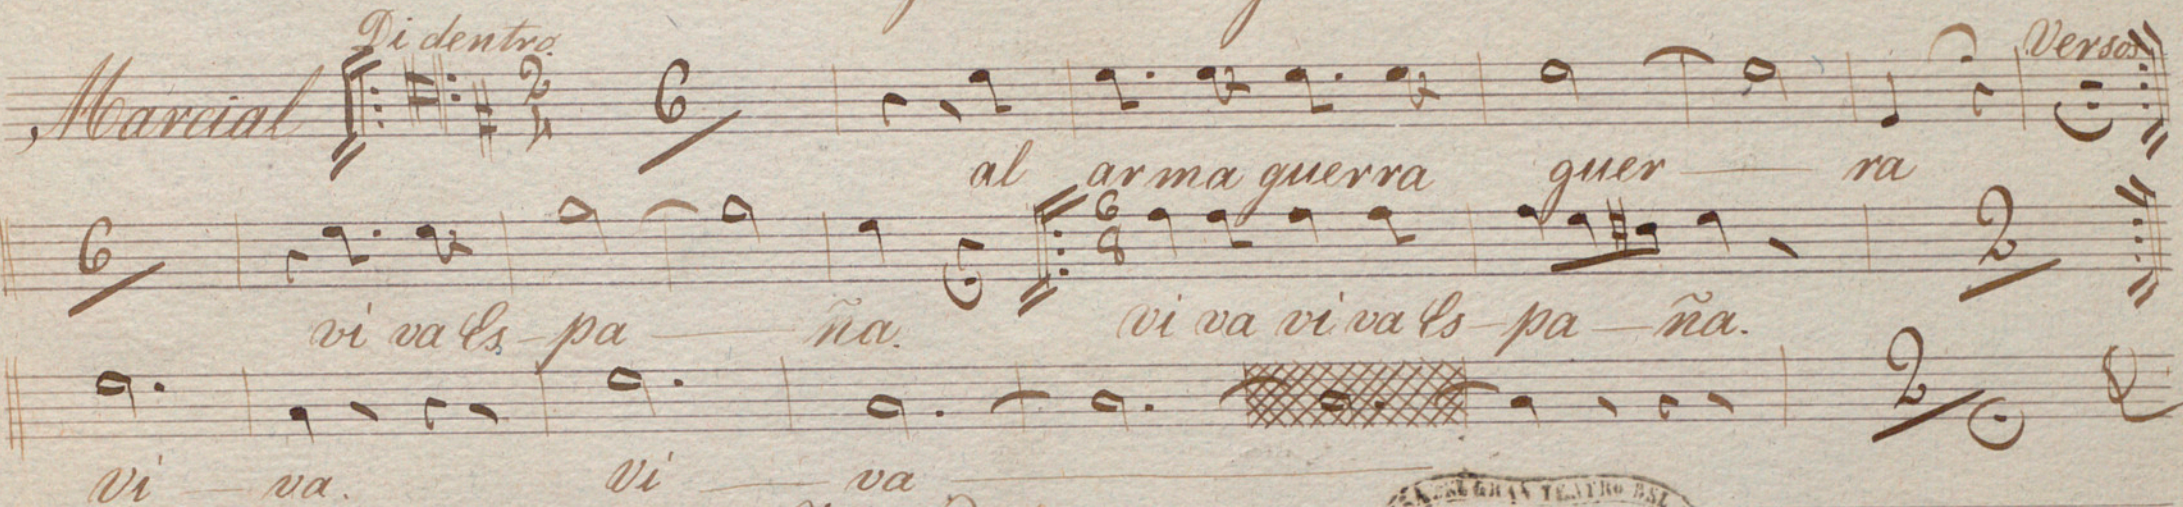 Di dentro.
Marcial
2
4
6
Versos
al arma guerra guer — ra
6
6
8
2
vi va Es - pa — ña. vi va vi va Es - pa — ña.
2
vi — va. vi — va
GRAN TEATRO DEL